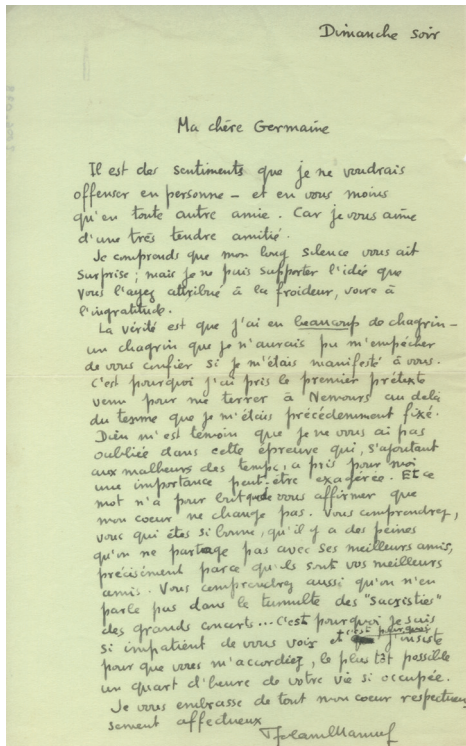 Dimanche soir
Ma chère Germaine
Il est des sentiments que je ne voudrais
offenser en personne – et en vous moins
qu'en toute autre amie. Car je vous aime
d'une très tendre amitié.
Je comprends que mon long silence vous ait
surprise ; mais je ne puis supporter l'idée que
vous l'ayez attribué à la froideur, voire à
l'ingratitude.
La vérité est que j'ai eu beaucoup de chagrin –
un chagrin que je n'aurais pu m'empêcher
de vous confier si je m'étais manifesté à vous.
C'est pourquoi j'ai pris le premier prétexte
venu pour me terrer à Nemours au delà
du terme que je m'étais précédemment fixé.
Dieu m'est témoin que je ne vous ai pas
oubliée dans cette épreuve qui, s'ajoutant
aux malheurs des temps, a pris pour moi
une importance peut-être exagérée. Et ce
mot n'a pour but que de vous affirmer que
mon coeur ne change pas. Vous comprendrez,
vous qui êtes si bonne, qu'il y a des peines
qu'on ne partage pas avec ses meilleurs amis,
précisément parce qu'ils sont vos meilleurs
amis. Vous comprendrez aussi qu'on n'en
parle pas dans le tumulte des "sacristies"
des grands concerts... C'est pourquoi je suis
si impatient de vous voir et c'est pourquoi j'insiste
pour que vous m'accordiez, le plus tôt possible
un quart d'heure de votre vie si occupée.
Je vous embrasse de tout mon coeur respectueu
sement affectueux